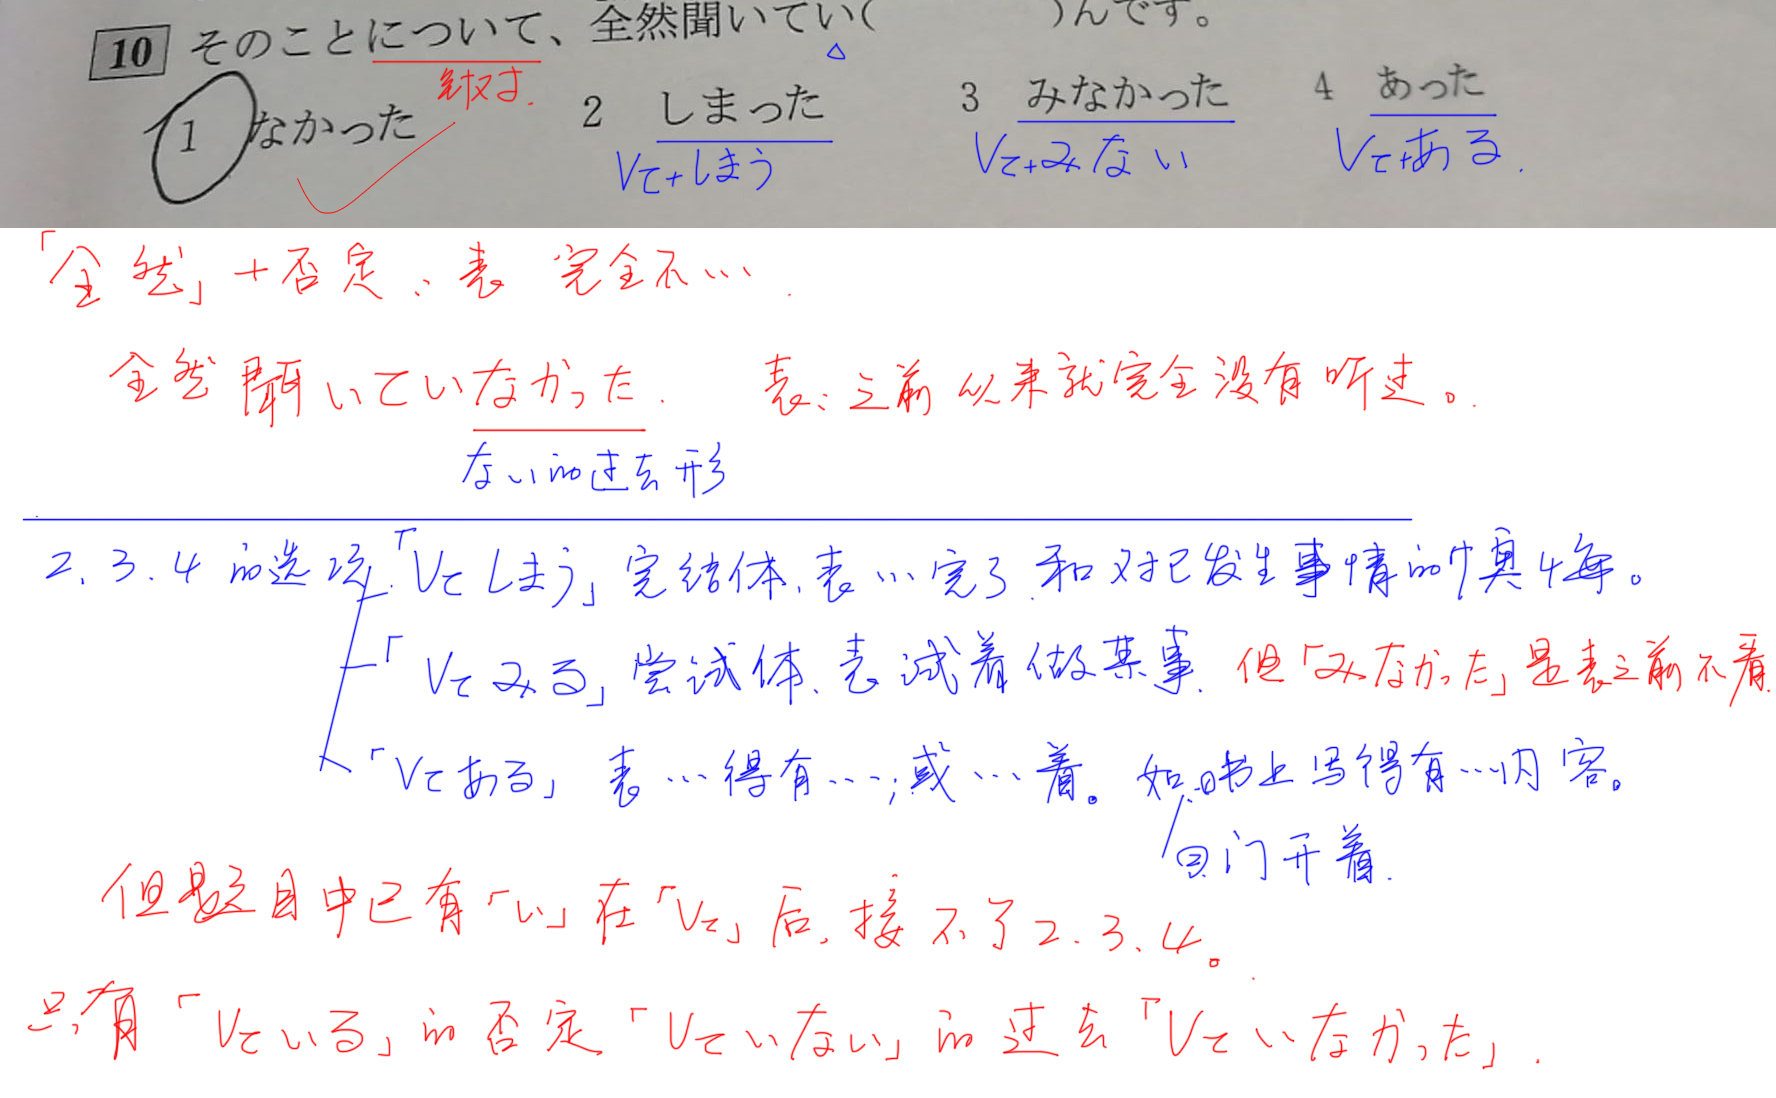 10 そのことについて、全然聞いてい( )んです。
1 なかった 2 しまった 3 みなかった 4 あった
Vて+しまう Vて+みない Vて+ある.
「全然」+否定:表 完全不….
全然聞いていなかった. 表:之前从来就完全没有听过。
ない的过去形
2.3.4的选项.「Vてしまう」完结体、表…完了.和对已发生事情的懊悔。
「Vてみる」尝试体、表试着做某事. 但「みなかった」是表之前不看.
「Vてある」表…得有…;或…着。如:①书上写得有…内容。
②门开着.
但题目中已有「い」在「Vて」后,接不了2.3.4。
只有「Vている」的否定「Vていない」的过去「Vていなかった」.